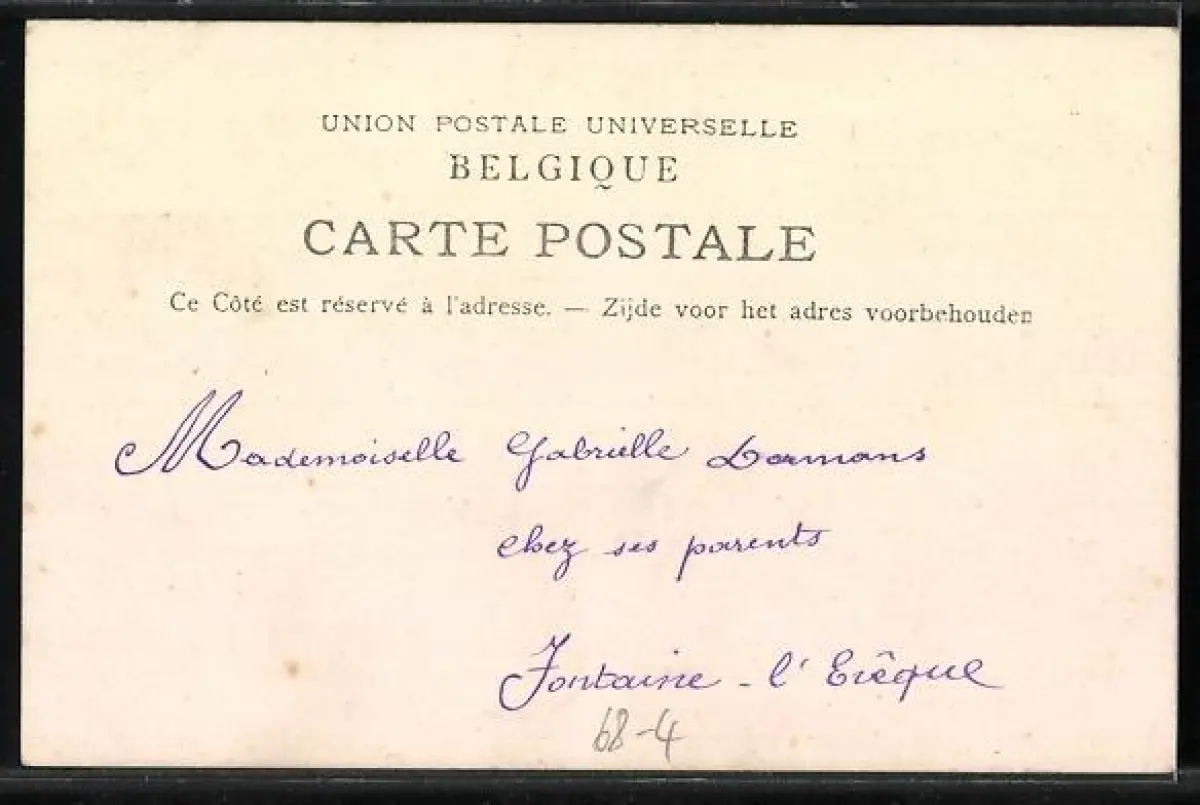 UNION POSTALE UNIVERSELLE
BELGIQUE
CARTE POSTALE
Ce Côté est réservé à l'adresse. — Zijde voor het adres voorbehouden
Mademoiselle Gabrielle Dormans
chez ses parents
Fontaine - l' Evêque
68-4